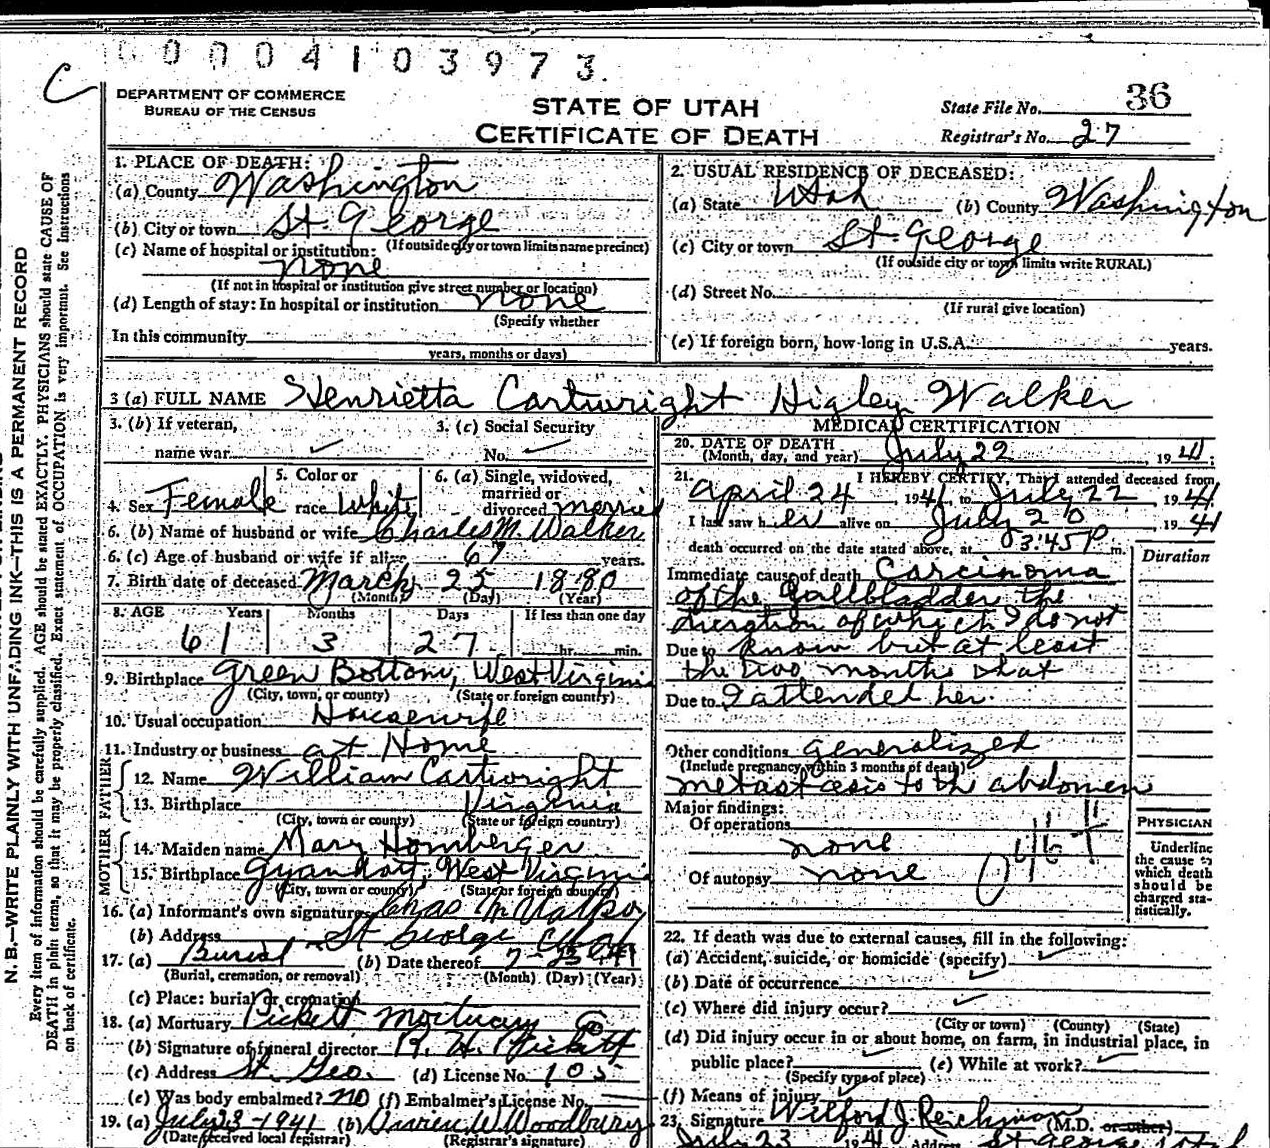 0004103973.
C
DEPARTMENT OF COMMERCE
BUREAU OF THE CENSUS
STATE OF UTAH
CERTIFICATE OF DEATH
State File No. 36
Registrar's No. 27
N. B.—WRITE PLAINLY WITH UNFADING INK—THIS IS A PERMANENT RECORD
Every item of information should be carefully supplied. AGE should be stated EXACTLY. PHYSICIANS should state CAUSE OF
DEATH in plain terms, so that it may be properly classified. Exact statement of OCCUPATION is very important. See Instructions
on back of certificate.
1. PLACE OF DEATH:
(a) County Washington
(b) City or town St. George
(If outside city or town limits name precinct)
(c) Name of hospital or institution:
none
(If not in hospital or institution give street number or location)
(d) Length of stay: In hospital or institution none
(Specify whether
In this community
years, months or days)
2. USUAL RESIDENCE OF DECEASED:
(a) State Utah (b) County Washington
(c) City or town St. George
(If outside city or town limits write RURAL)
(d) Street No.
(If rural give location)
(e) If foreign born, how long in U.S.A. years.
3 (a) FULL NAME Henrietta Cartwright Higley Walker
3. (b) If veteran,
name war
3. (c) Social Security
No.
4. Sex Female
5. Color or
race White
6. (a) Single, widowed,
married or
divorced married
6. (b) Name of husband or wife Charles M. Walker
6. (c) Age of husband or wife if alive 67 years.
7. Birth date of deceased March 25 1880
(Month) (Day) (Year)
8. AGE Years Months Days If less than one day
61 3 27 hr. min.
9. Birthplace Green Bottom, West Virginia
(City, town, or county) (State or foreign country)
10. Usual occupation Housewife
11. Industry or business at Home
FATHER
12. Name William Cartwright
13. Birthplace Virginia
(City, town or county) (State or foreign country)
MOTHER
14. Maiden name Mary Hornberger
15. Birthplace Gyandott, West Virginia
(City, town or county) (State or foreign country)
16. (a) Informant's own signature Chas M Walker
(b) Address St George Utah
17. (a) Burial (b) Date thereof 7-23-41
(Burial, cremation, or removal) (Month) (Day) (Year)
(c) Place: burial or cremation
18. (a) Mortuary Pickett Mortuary
(b) Signature of funeral director R. H. Pickett
(c) Address St. Geo. (d) License No. 105
(e) Was body embalmed? no (f) Embalmer's License No.
19. (a) July 23-1941 (b) W Woodbury
(Date received local registrar) (Registrar's signature)
MEDICAL CERTIFICATION
20. DATE OF DEATH
(Month, day, and year) July 22, 1941;
21. I HEREBY CERTIFY, That I attended deceased from
April 24 1941 to July 22 1941
I last saw her alive on July 20 1941
death occurred on the date stated above, at 3:45 P m.
Duration
Immediate cause of death Carcinoma
of the Gallbladder the
duration of which I do not
Due to know but at least
the two months that
Due to I attended her.
Other conditions generalized
(Include pregnancy within 3 months of death)
metastasis to the abdomen
Major findings:
Of operations
none
Of autopsy none
PHYSICIAN
Underline
the cause to
which death
should be
charged sta-
tistically.
22. If death was due to external causes, fill in the following:
(a) Accident, suicide, or homicide (specify)
(b) Date of occurrence
(c) Where did injury occur?
(City or town) (County) (State)
(d) Did injury occur in or about home, on farm, in industrial place, in
public place? (e) While at work?
(Specify type of place)
(f) Means of injury
23. Signature Wilford J. Reichman (M.D. or other)
July 23 1941 Address St George Utah